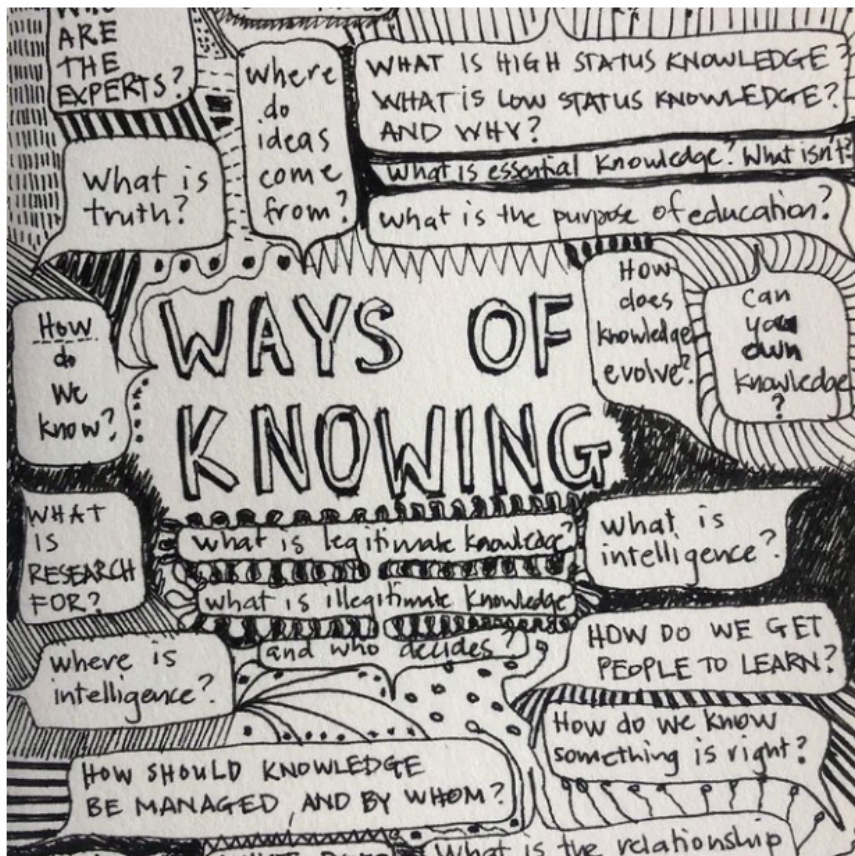 WHO
ARE
THE
EXPERTS?
where
do
ideas
come
from?
WHAT IS HIGH STATUS KNOWLEDGE?
WHAT iS LOW STATUS KNOWLEDGE?
AND WHY?
What is essential knowledge? What isn't?
what is the purpose of education?
What is
truth?
How
do
We
know?
WAYS OF
KNOWING
How
does
knowledge
evolve?
Can
you
own
knowledge
?
WHAT
IS
RESEARCH
FOR?
what is legitimate knowledge?
what is illegitimate knowledge
and who decides?
what is
intelligence?
where is
intelligence?
HOW DO WE GET
PEOPLE TO LEARN?
How do we know
something is right?
HOW SHOULD KNOWLEDGE
BE MANAGED, AND BY WHOM?
What is the relationship